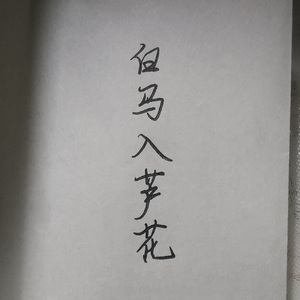 白马入芦花